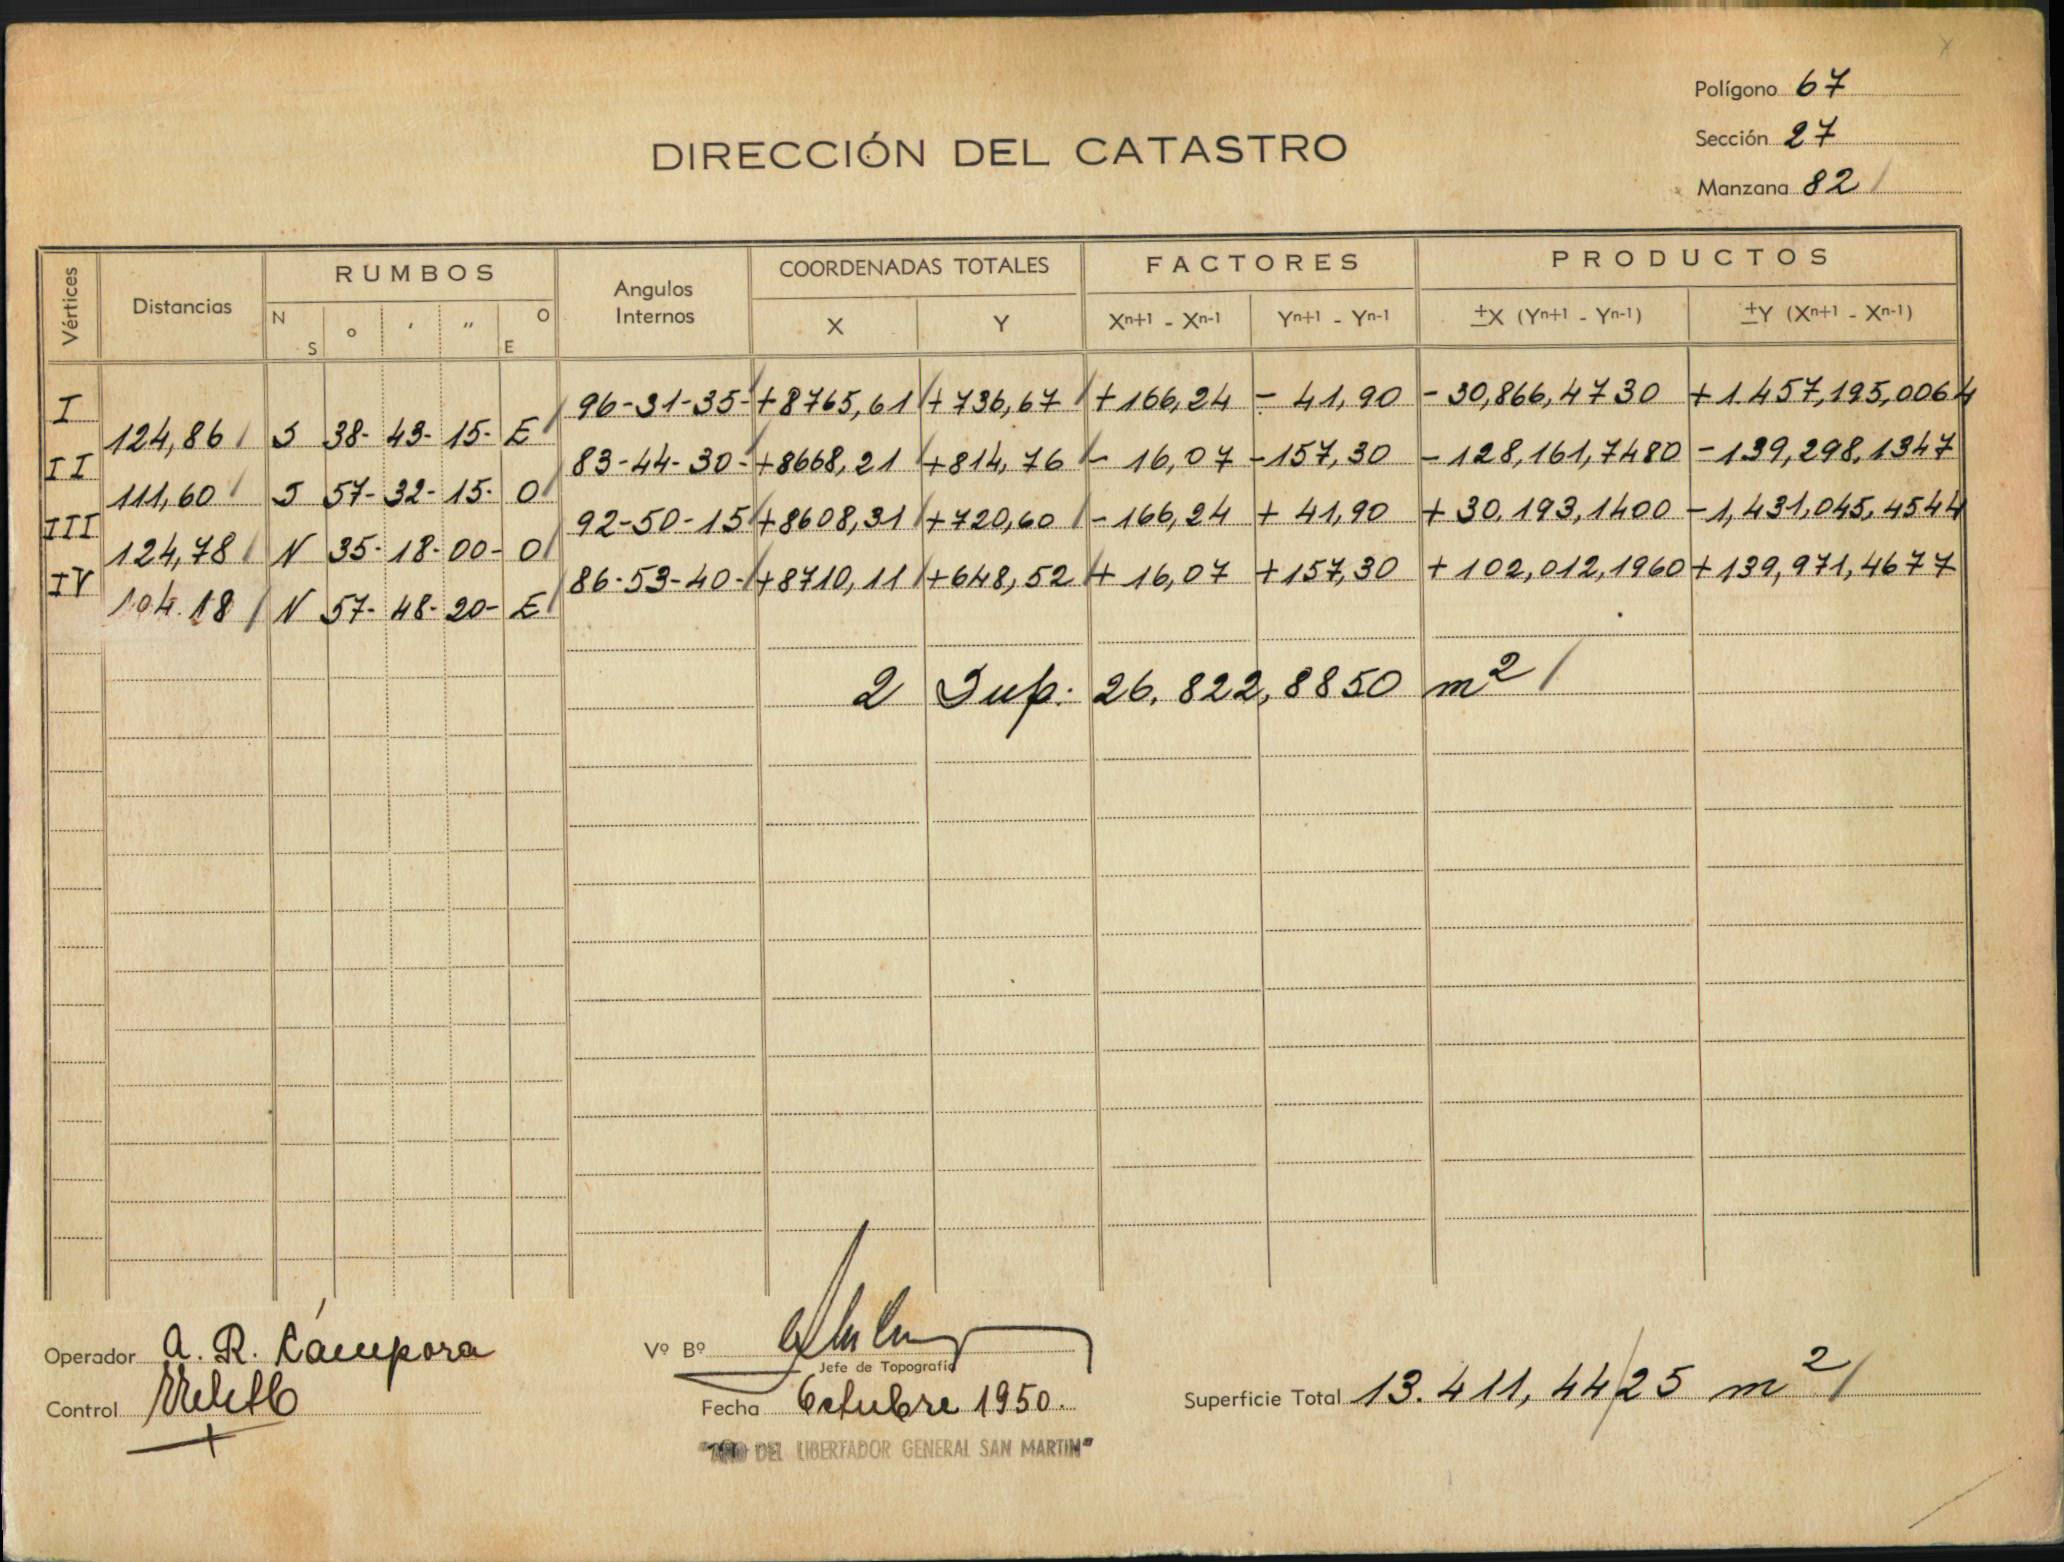 Polígono 67
Sección 27
DIRECCIÓN DEL CATASTRO
Manzana 82
Vértices Distancias RUMBOS N S o ' '' O E Angulos Internos COORDENADAS TOTALES X Y FACTORES Xn+1 - Xn-1 Yn+1 - Yn-1 PRODUCTOS ±X (Yn+1 - Yn-1) ±Y (Xn+1 - Xn-1)
I 96-31-35- +8765,61 +736,67 +166,24 - 41,90 -30,866,4730 +1.457,195,0064
124,86 S 38- 43- 15- E
II 83-44-30- +8668,21 +814,76 - 16,07 -157,30 -128,161,7480 -139,298,1347
111,60 S 57- 32- 15- O
III 92-50-15 +8608,31 +720,60 -166,24 + 41,90 +30,193,1400 -1,431,045,4544
124,78 N 35- 18- 00- O
IV 86-53-40- +8710,11 +648,52 + 16,07 +157,30 +102,012,1960 +139,971,4677
104.18 N 57- 48- 20- E
2 Sup. 26.822,8850 m2
Operador A. R. Cámpora
Vº Bº
Jefe de Topografía
Control
Fecha Octubre 1950.
Superficie Total 13.411,4425 m2
"AÑO DEL LIBERTADOR GENERAL SAN MARTIN"